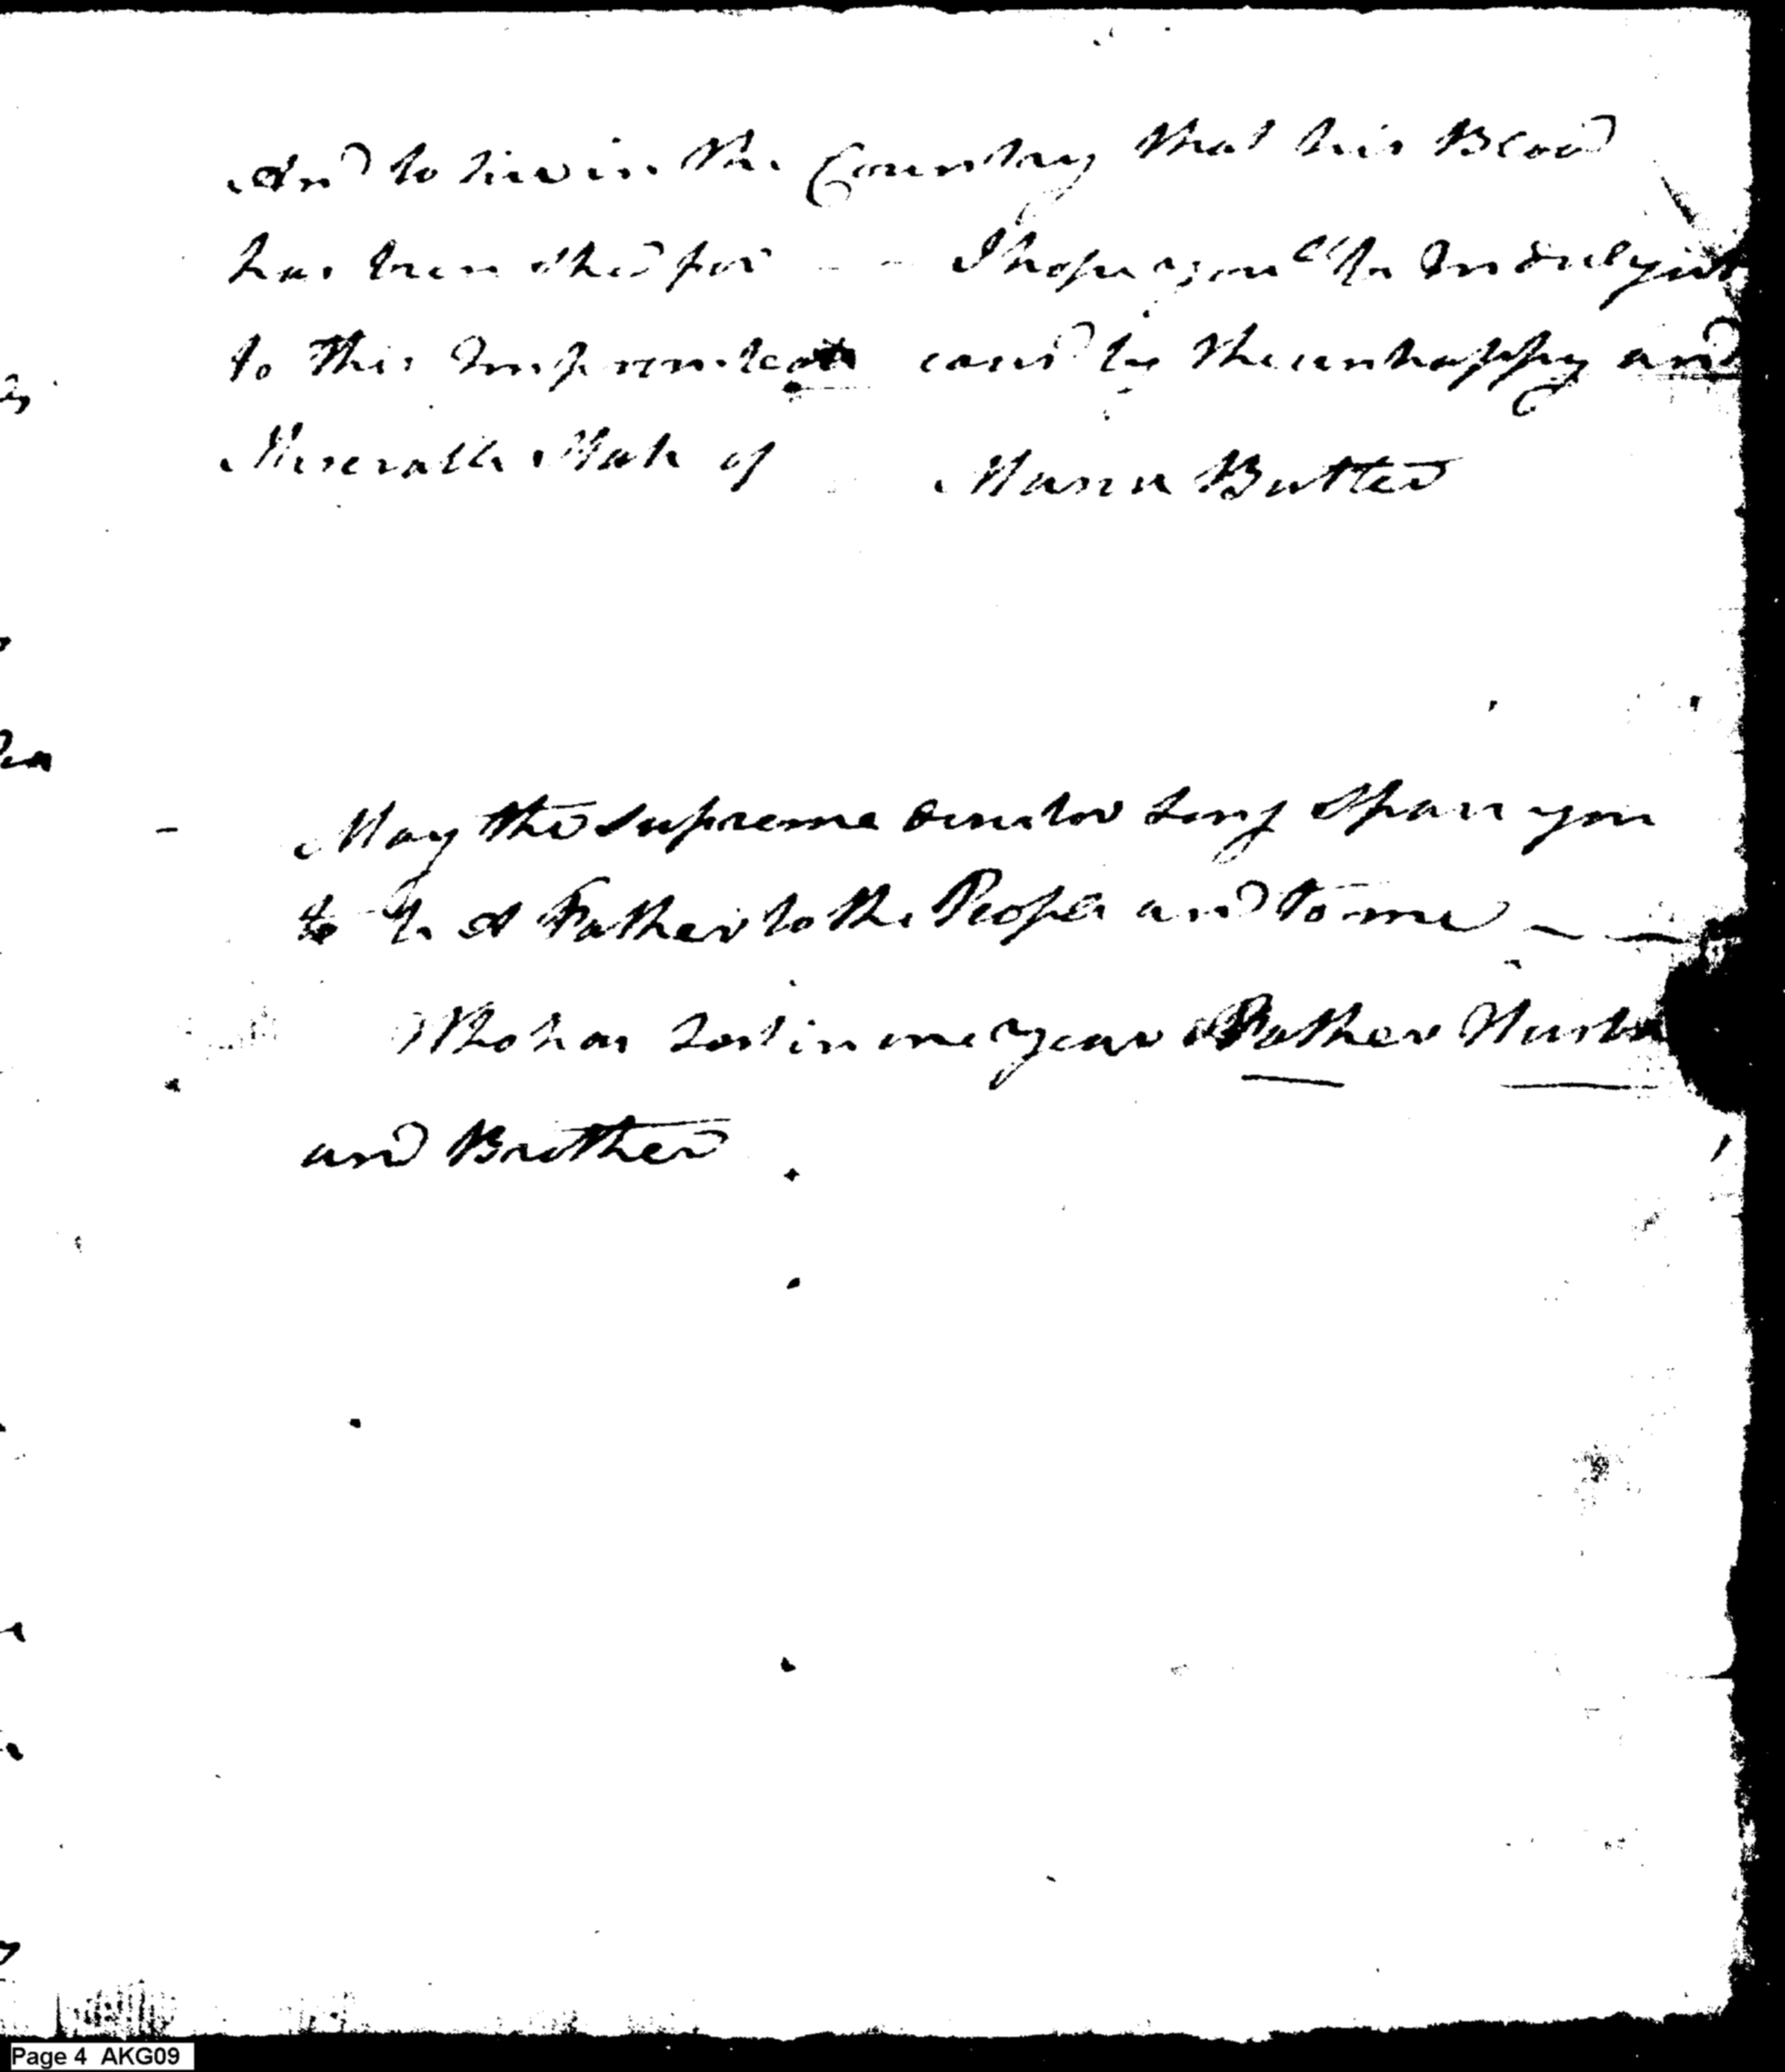 And to live in the Country that his Blood
has been shed for - - I hope you ll be Indulgent
to this caus'd by the unhappy and
Miserable State of Maria Butler
- May the Supreme long Spare you
to be A Father to the People and to me
Who has Lost in one year Father Husba
and Brother
Page 4 AKG09